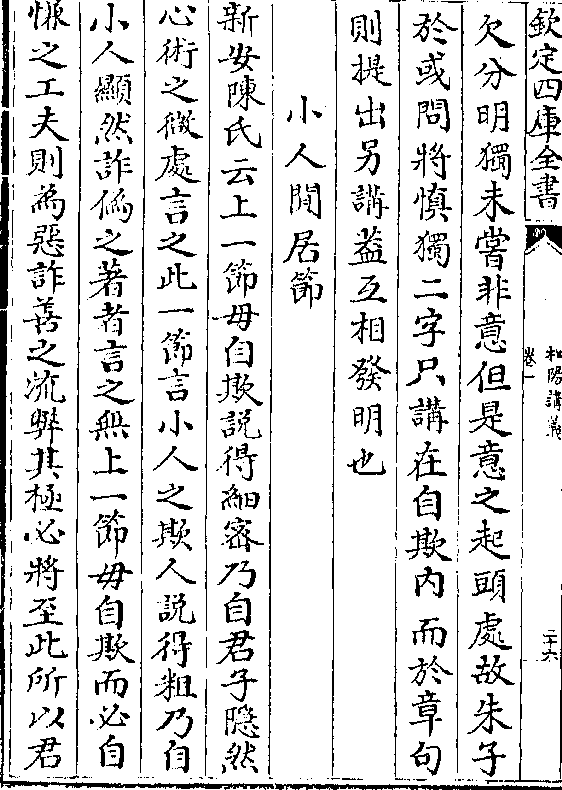 欽定四庫全書
松陽講義
卷一
二十六
欠分明獨未嘗非意但是意之起頭處故朱子
於或問將慎獨二字只講在自欺内而於章句
則提出另講葢互相發明也
小人閒居節
新安陳氏云上一節毋自欺説得細密乃自君子隱然
心術之㣲處言之此一節言小人之欺人説得粗乃自
小人顯然詐偽之著者言之無上一節毋自欺而必自
慊之工夫則為惡詐善之流弊其極必將至此所以君